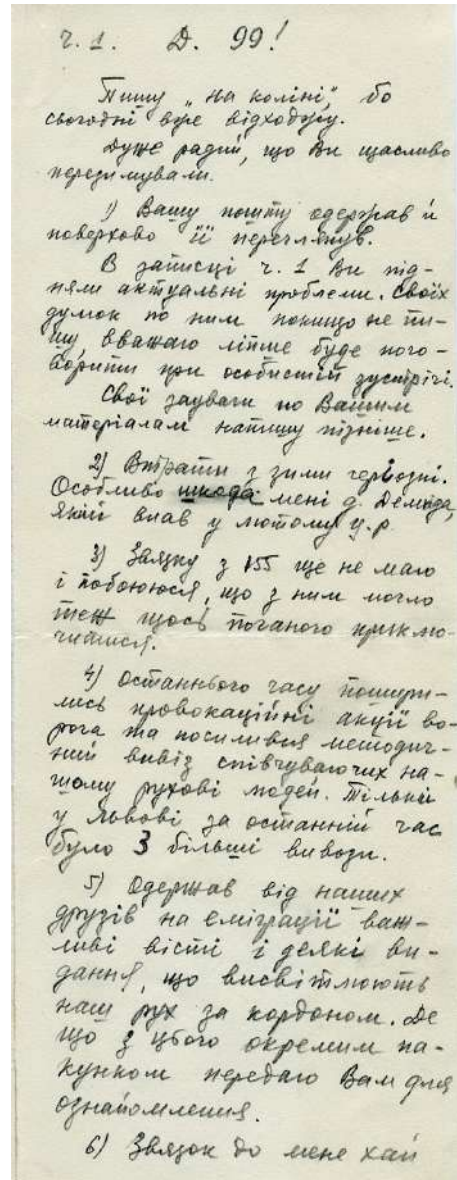 ч. 1. Д. 99!
Пишу „на коліні", бо
сьогодні вже відходжу.
Дуже радий, що Ви щасливо
перезимували.
1) Вашу пошту одержав й
поверхово її переглянув.
В записці ч. 1 Ви під-
няли актуальні проблеми. Своїх
думок по ним покищо не пи-
шу, вважаю ліпше буде пого-
ворити при особистій зустрічі.
Свої зауваги по Вашим
матеріалам напишу пізніше.
2) Втрати з зими червозні.
Особливо шкода мені д. Демида,
який впав у лютому ц.р.
3) Звязку з 155 ще не маю
і побоююся, що з ним могло
теж щось поганого приклю-
читися.
4) Останнього часу пошири-
лись провокаційні акції во-
рога та посилився методич-
ний вивіз співчуваючих на-
шому рухові людей. Тільки
у Львові за останній час
було 3 більші вивози.
5) Одержав від наших
друзів на еміграції важ-
ливі вісті і деякі ви-
дання, що висвітлюють
наш рух за кордоном. Де
що з цього окремим па-
кунком передаю Вам для
ознайомлення.
6) Звязок до мене хай